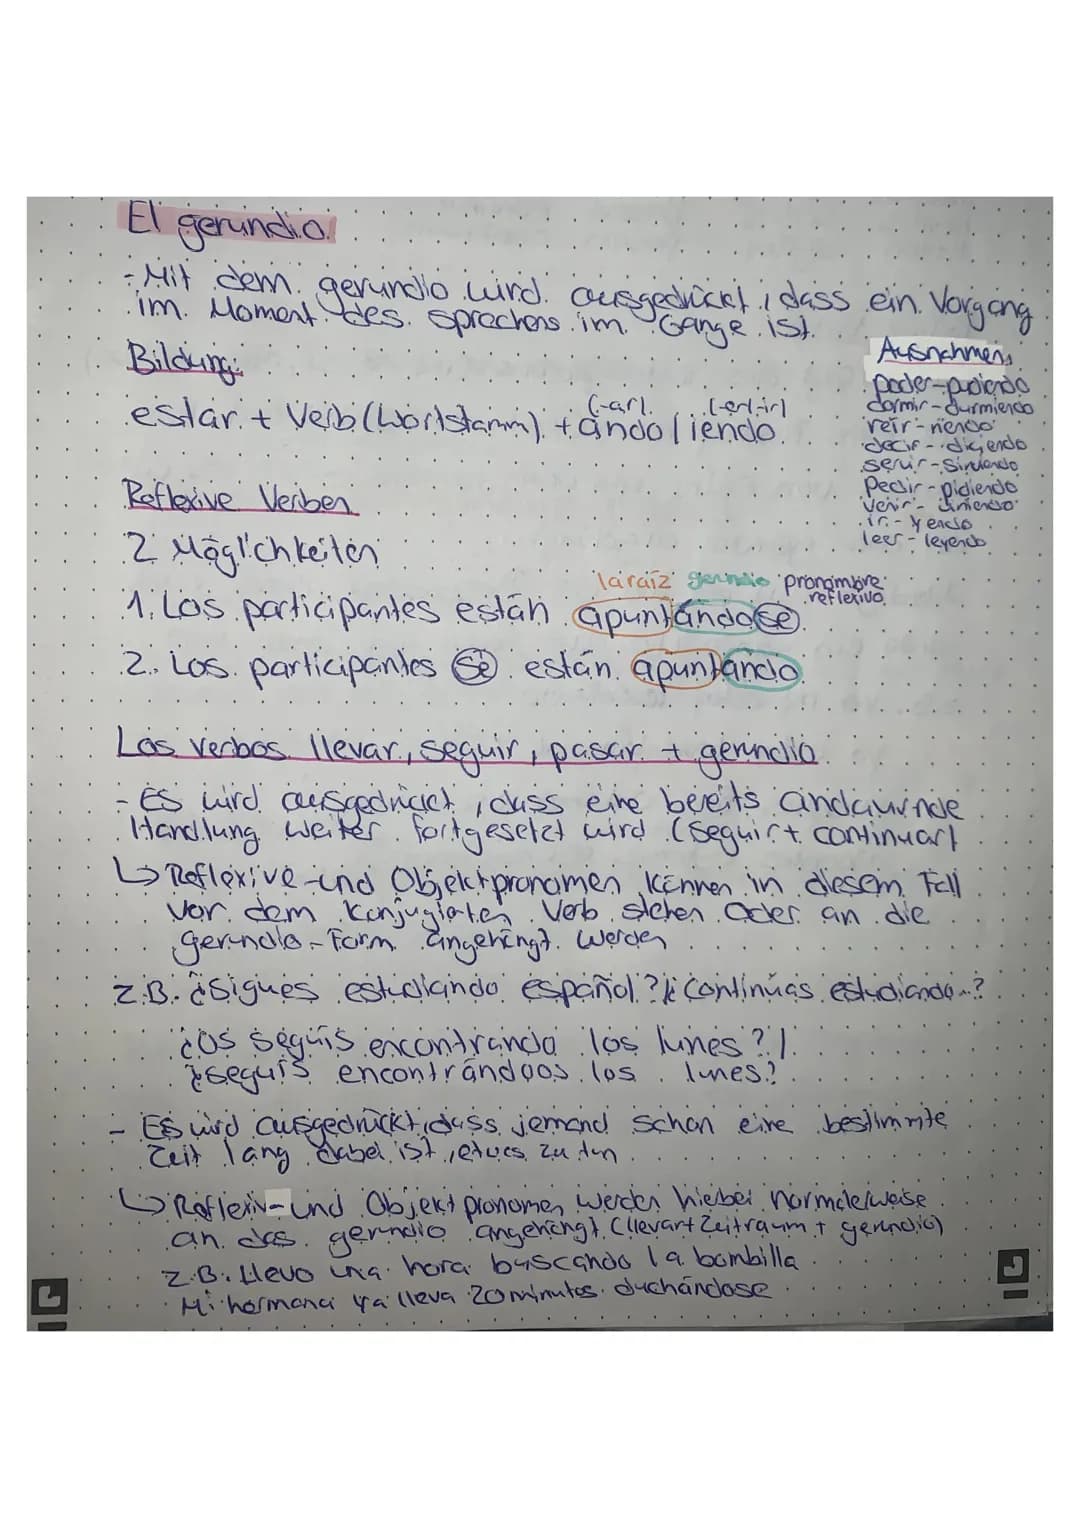 El gerundio
- Mit dem gerundio wird ausgedrückt, dass ein Vorgang
im Moment des sprechens im Gange ist.
Bildung:
(-ar) (-er/-ir)
estar + Verb (Wortstamm) + ando / iendo
Ausnahmen
poder - pudiendo
dormir - durmiendo
reír - riendo
decir - diciendo
servir - sirviendo
Pedir - pidiendo
Venir - viniendo
ir - yendo
leer - leyendo
Reflexive Verben
2 Möglichkeiten
la raíz gerundio pronombre
reflexivo
1. Los participantes están apuntándose
2. Los participantes se están apuntando
Los verbos llevar, seguir, pasar + gerundio
- Es wird ausgedrückt, dass eine bereits andauernde
Handlung weiter fortgesetzt wird (seguir + continuar)
↳ Reflexive- und Objektpronomen können in diesem Fall
vor dem konjugierten Verb stehen oder an die
gerundio-Form angehängt werden
z.B. ¿Sigues estudiando español? / ¿Continúas estudiando...?
¿Os seguís encontrando los lunes? /
¿seguís encontrándoos los lunes?
- Es wird ausgedrückt, dass jemand schon eine bestimmte
Zeit lang dabei ist, etwas zu tun
↳ Reflexiv- und Objektpronomen werden hiebei normalerweise
an das gerundio angehängt. (llevar + Zeitraum + gerundio)
z.B. Llevo una hora buscando la bombilla
Mi hermana ya lleva 20 minutos duchándose